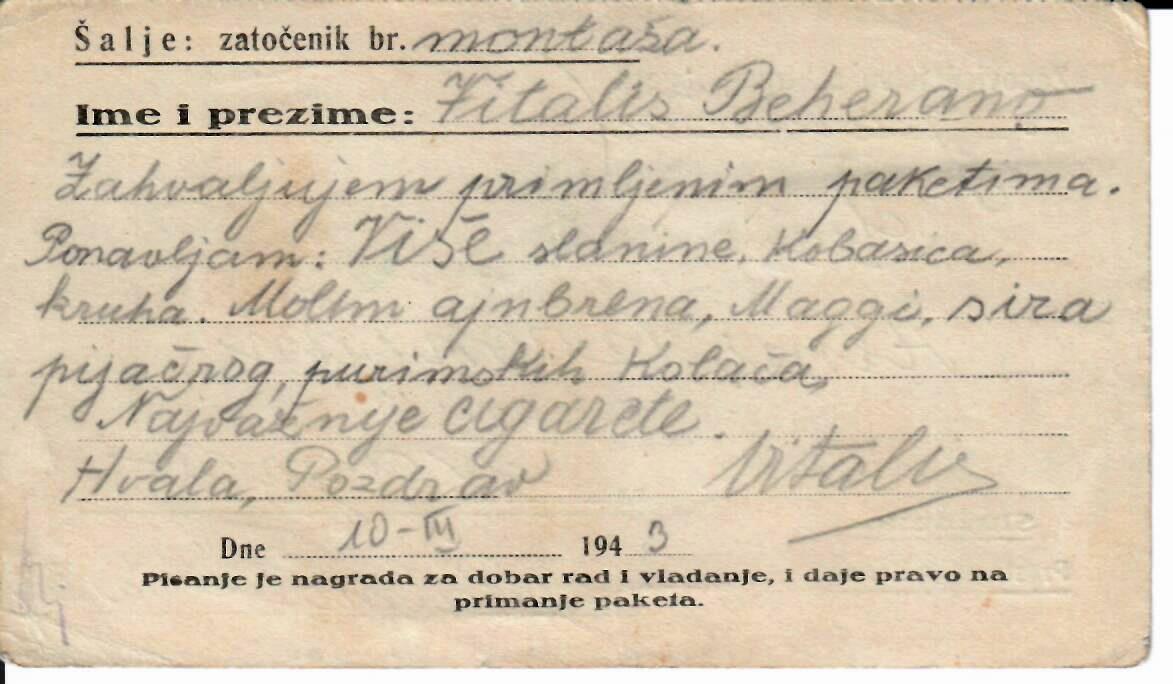 Šalje: zatočenik br. montaža.
Ime i prezime: Vitalis Beherano
Zahvaljujem primljenim paketima.
Ponavljam: Više slanine, Kobasica,
kruha. Molim ajnbrena, Maggi, sira
pijaćnog, purimskih Kolača,
Najvažnije cigarete.
Hvala, Pozdrav Vitalis
Dne 10-III 1943
Pisanje je nagrada za dobar rad i vladanje, i daje pravo na
primanje paketa.